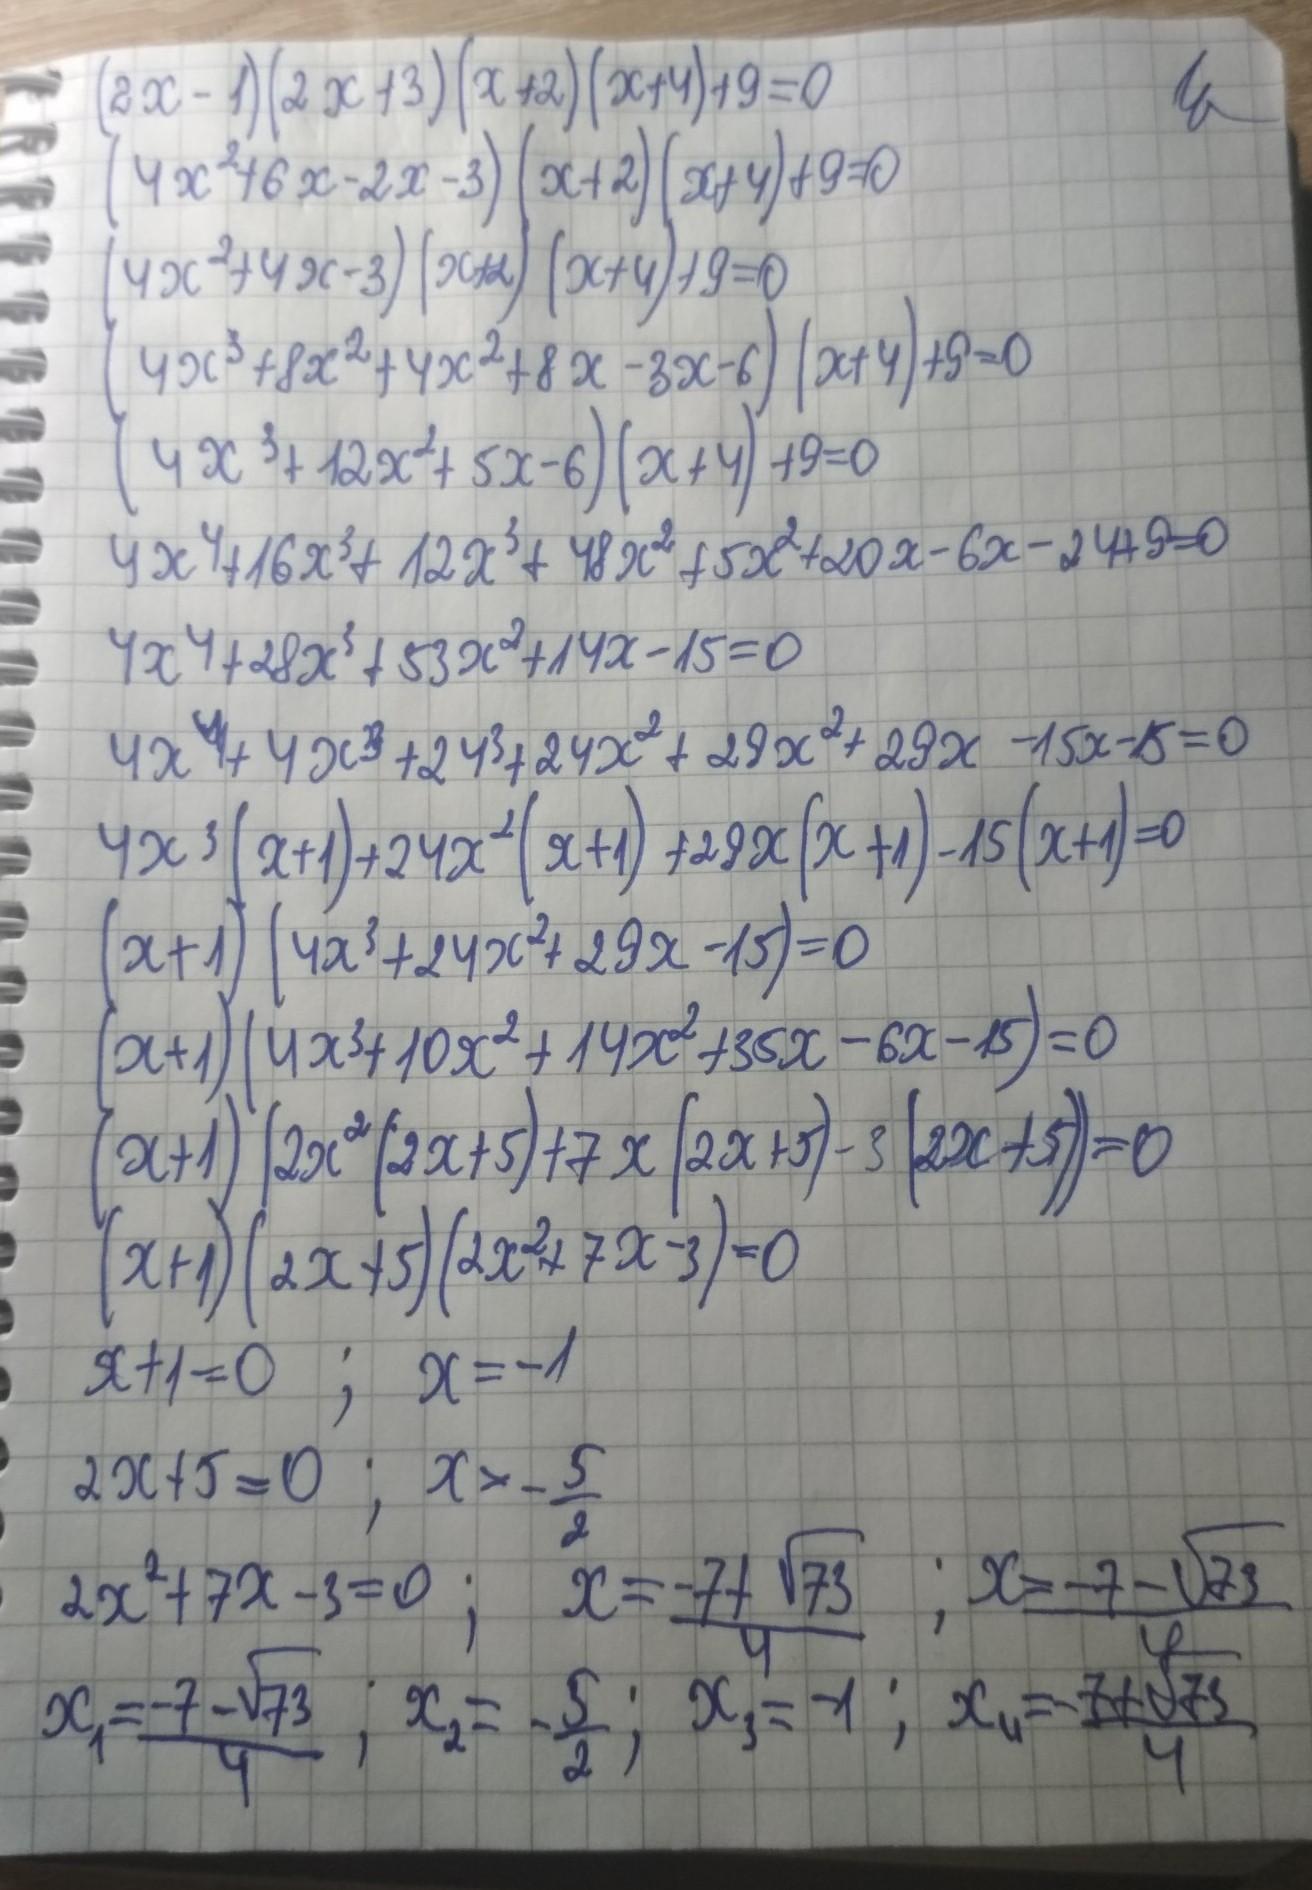 (2x-1)(2x+3)(x+2)(x+4)+9=0
(4x²+6x-2x-3)(x+2)(x+4)+9=0
(4x²+4x-3)(x+2)(x+4)+9=0
(4x³+8x²+4x²+8x-3x-6)(x+4)+9=0
(4x³+12x²+5x-6)(x+4)+9=0
4x⁴+16x³+12x³+48x²+5x²+20x-6x-24+9=0
4x⁴+28x³+53x²+14x-15=0
4x⁴+4x³+24³+24x²+29x²+29x-15x-15=0
4x³(x+1)+24x²(x+1)+29x(x+1)-15(x+1)=0
(x+1)(4x³+24x²+29x-15)=0
(x+1)(4x³+10x²+14x²+35x-6x-15)=0
(x+1)(2x²(2x+5)+7x(2x+5)-3(2x+5))=0
(x+1)(2x+5)(2x²+7x-3)=0
x+1=0 ; x=-1
2x+5=0 ; x=-5/2
2x²+7x-3=0 ; x=(-7+√73)/4 ; x=(-7-√73)/4
x₁=(-7-√73)/4 ; x₂=-5/2 ; x₃=-1 ; x₄=(-7+√73)/4